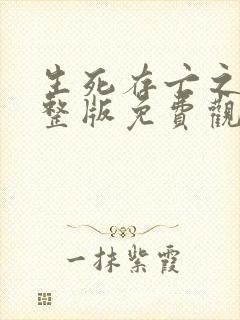 生死存亡之
整版免費觀
一抹紫霞